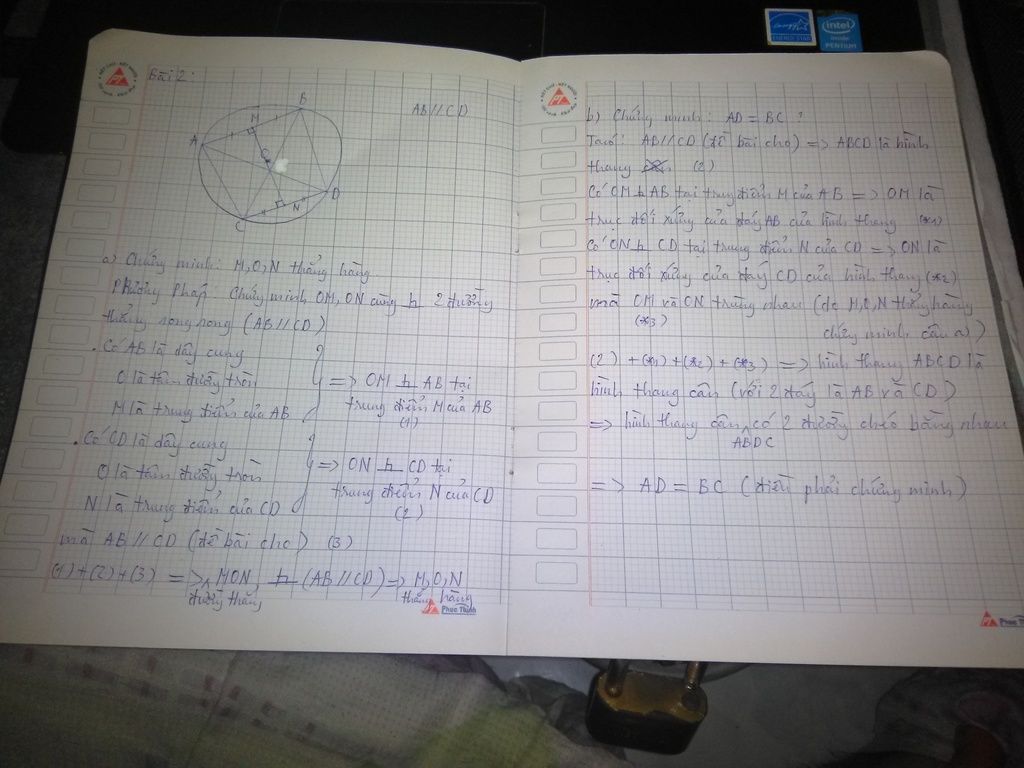 ENERGY STAR
intel
inside
PENTIUM
Bài 2:
AB // CD
A
M
B
O
D
N
C
a) Chứng minh: M, O, N thẳng hàng.
Phương pháp: Chứng minh OM, ON cùng ⊥ 2 đường
thẳng song song (AB // CD)
. Có AB là dây cung
O là tâm đường tròn
M là trung điểm của AB
=> OM ⊥ AB tại
trung điểm M của AB
(1)
. Có CD là dây cung
O là tâm đường tròn
N là trung điểm của CD
=> ON ⊥ CD tại
trung điểm N của CD
(2)
mà AB // CD (đề bài cho) (3)
(1) + (2) + (3) => MON ⊥ (AB // CD) => M, O, N
đường thẳng
thẳng hàng
Phúc Thịnh
b) Chứng minh: AD = BC ?
Ta có: AB // CD (đề bài cho) => ABCD là hình
thang (2)
Có OM ⊥ AB tại trung điểm M của AB => OM là
trục đối xứng của đáy AB của hình thang (*1)
Có ON ⊥ CD tại trung điểm N của CD => ON là
trục đối xứng của đáy CD của hình thang (*2)
mà OM và ON trùng nhau (do M, O, N thẳng hàng
(*3)
chứng minh câu a)
(2) + (*1) + (*2) + (*3) => hình thang ABCD là
hình thang cân (với 2 đáy là AB và CD)
=> hình thang cân có 2 đường chéo bằng nhau
ABDC
=> AD = BC (điều phải chứng minh)